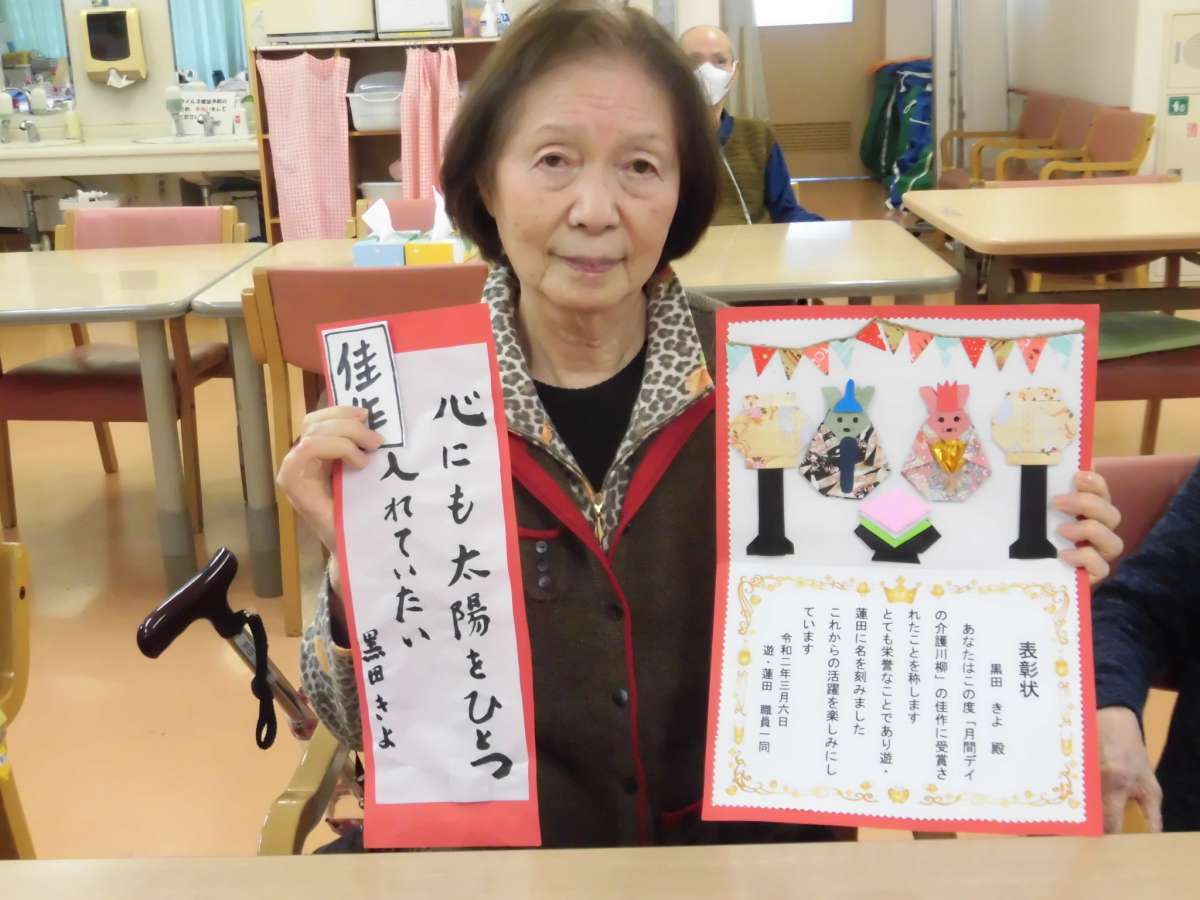 佳作
心にも太陽をひとつ
入れていたい
黒田きよ
表彰状
黒田 きよ 殿
あなたはこの度「月間デイ
の介護川柳」の佳作に受賞さ
れたことを称します
とても栄誉なことであり遊・
蓮田に名を刻みました
これからの活躍を楽しみにし
ています
令和二年三月六日
遊・蓮田 職員一同